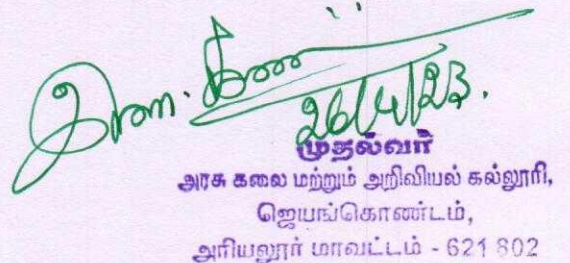 26/4/23.
முதல்வர்
அரசு கலை மற்றும் அறிவியல் கல்லூரி,
ஜெயங்கொண்டம்,
அரியலூர் மாவட்டம் - 621 802